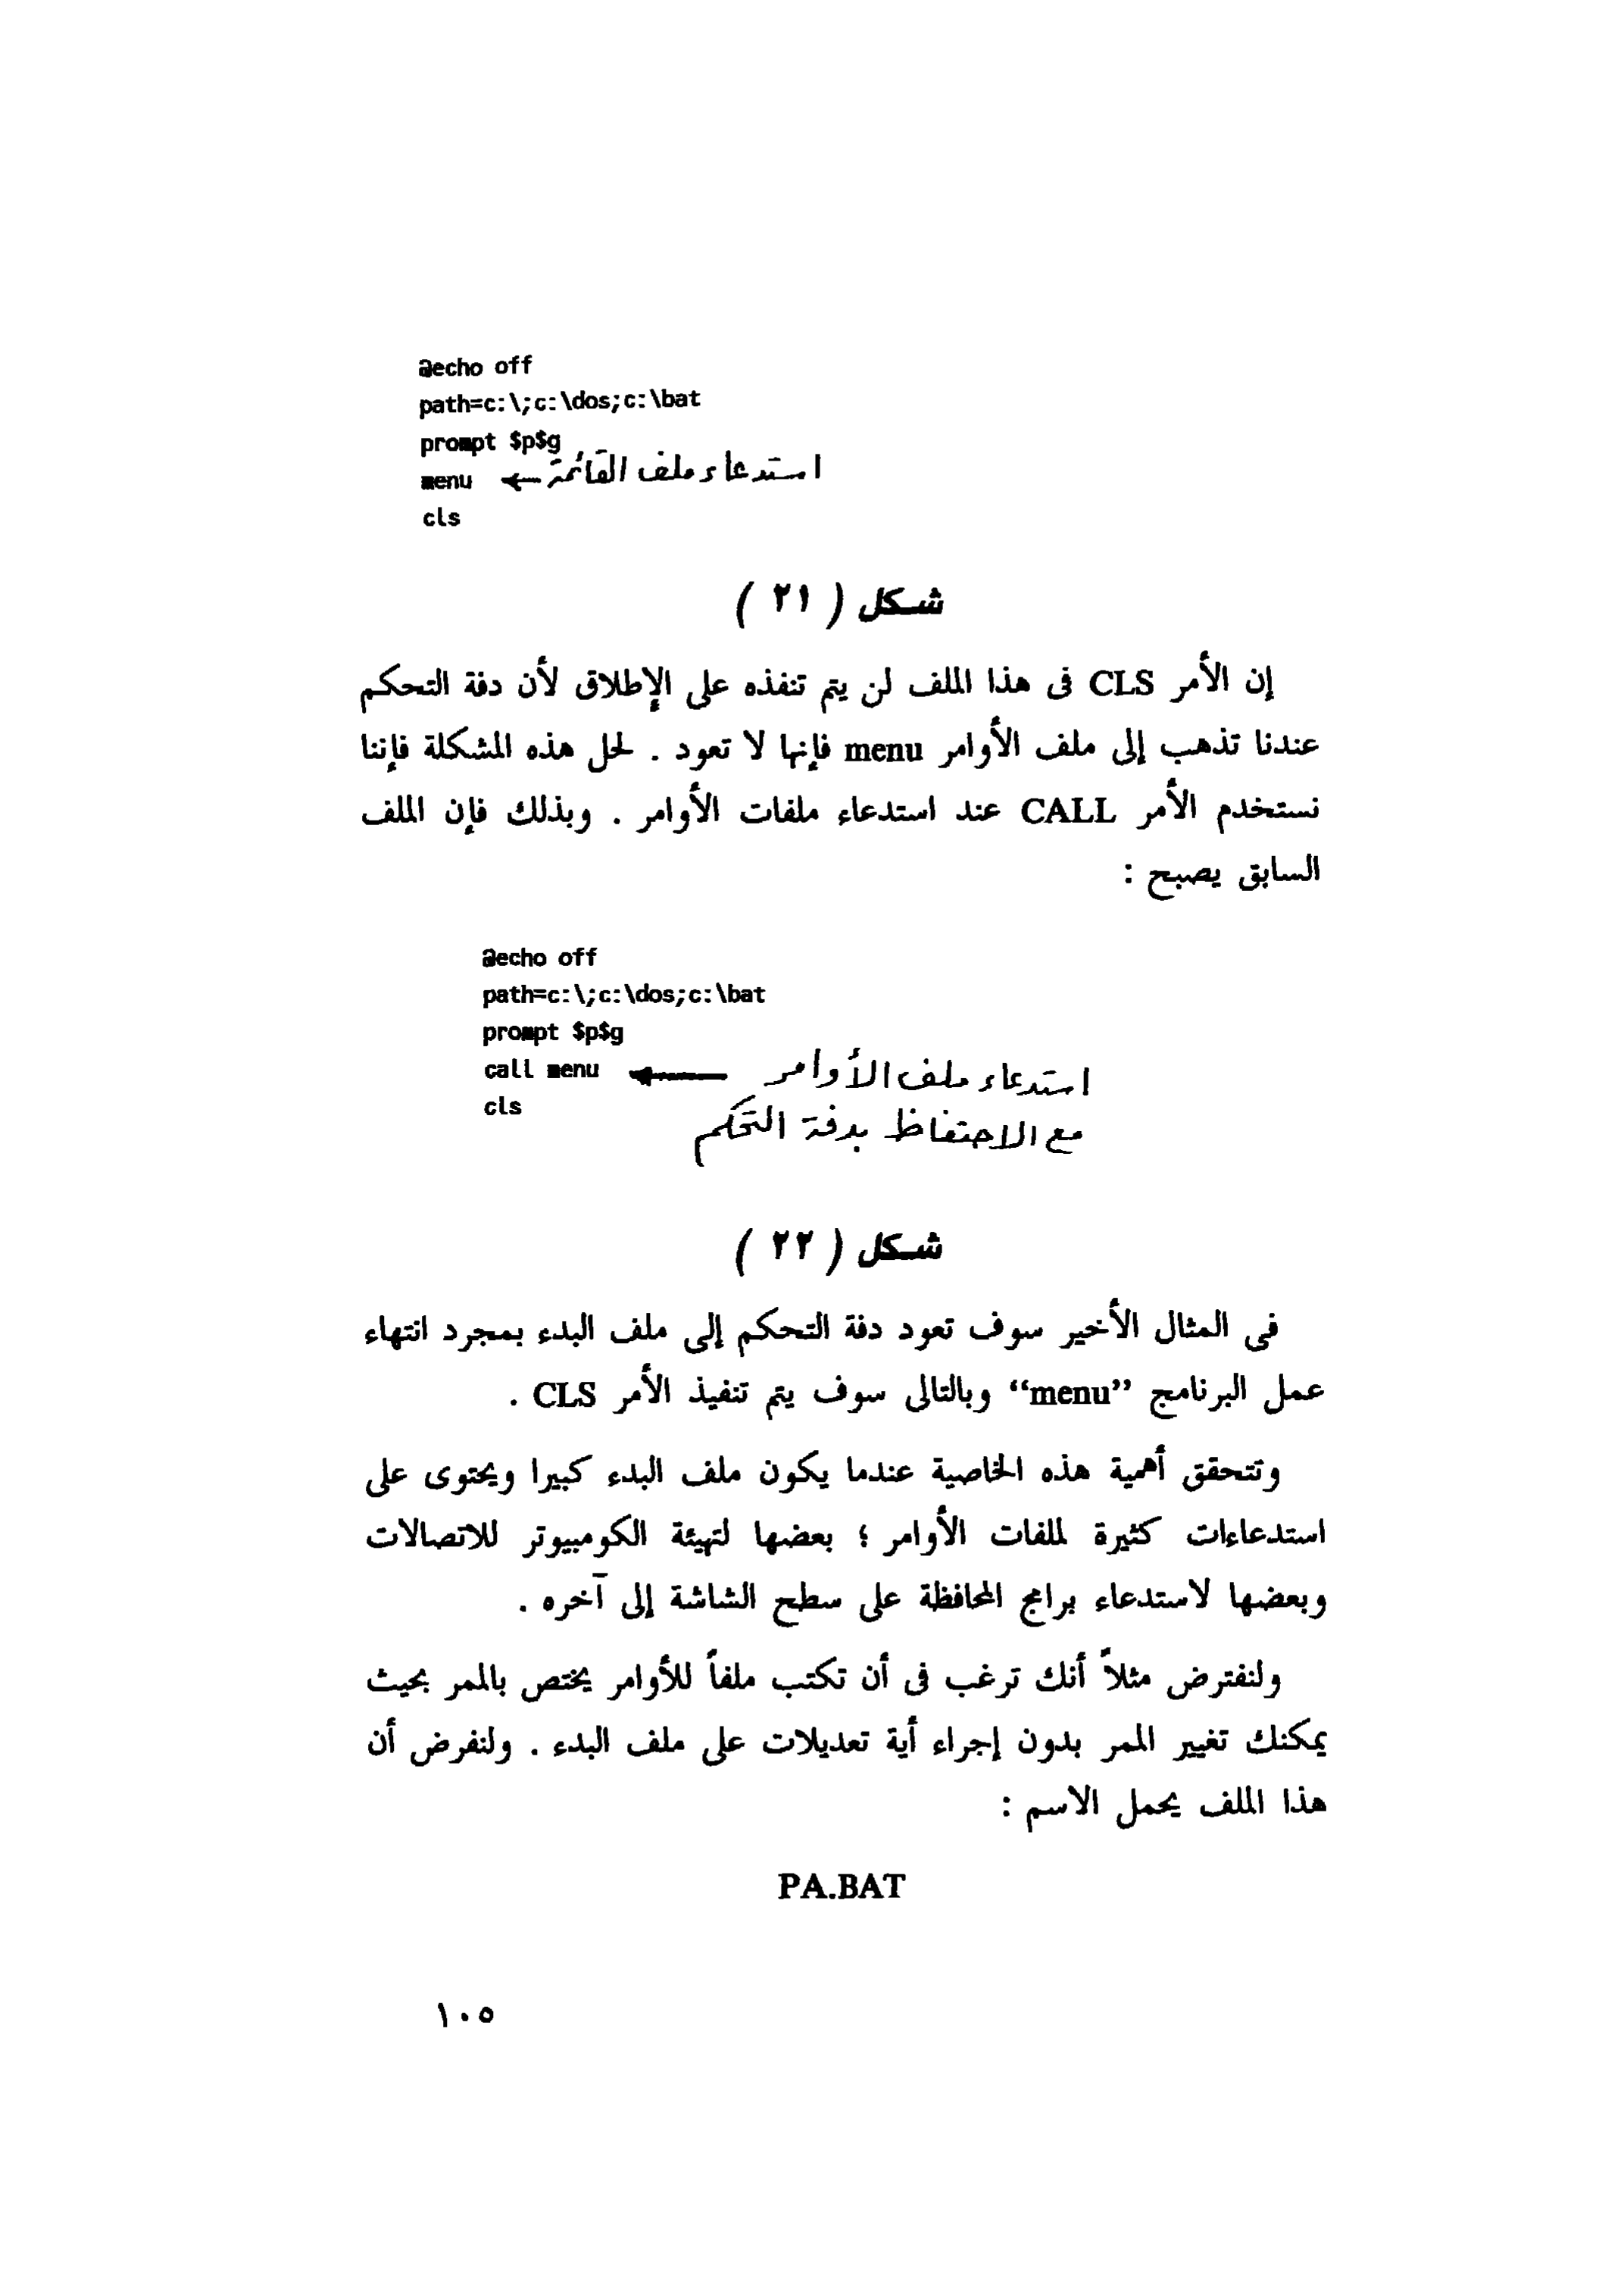 @echo off
path=c:\;c:\dos;c:\bat
prompt $p$g
menu ← استدعاء ملف القائمة
cls
شكل ( ٢١ )
إن الأمر CLS فى هذا الملف لن يتم تنفذه على الإطلاق لأن دفة التحكم
عندنا تذهب إلى ملف الأوامر menu فإنها لا تعود . لحل هذه المشكلة فإننا
نستخدم الأمر CALL عند استدعاء ملفات الأوامر . وبذلك فإن الملف
السابق يصبح :
@echo off
path=c:\;c:\dos;c:\bat
prompt $p$g
call menu ← استدعاء ملف الأوامر
cls
مع الاحتفاظ بدفة التحكم
شكل ( ٢٢ )
فى المثال الأخير سوف تعود دفة التحكم إلى ملف البدء بمجرد انتهاء
عمل البرنامج “menu” وبالتالى سوف يتم تنفيذ الأمر CLS .
وتتحقق أهمية هذه الخاصية عندما يكون ملف البدء كبيرا ويحتوى على
استدعاءات كثيرة لملفات الأوامر ؛ بعضها لتهيئة الكومبيوتر للاتصالات
وبعضها لاستدعاء برامج المحافظة على سطح الشاشة إلى آخره .
ولنفترض مثلاً أنك ترغب فى أن تكتب ملفاً للأوامر يختص بالممر بحيث
يمكنك تغيير الممر بدون إجراء أية تعديلات على ملف البدء . ولنفرض أن
هذا الملف يحمل الاسم :
PA.BAT
١٠٥